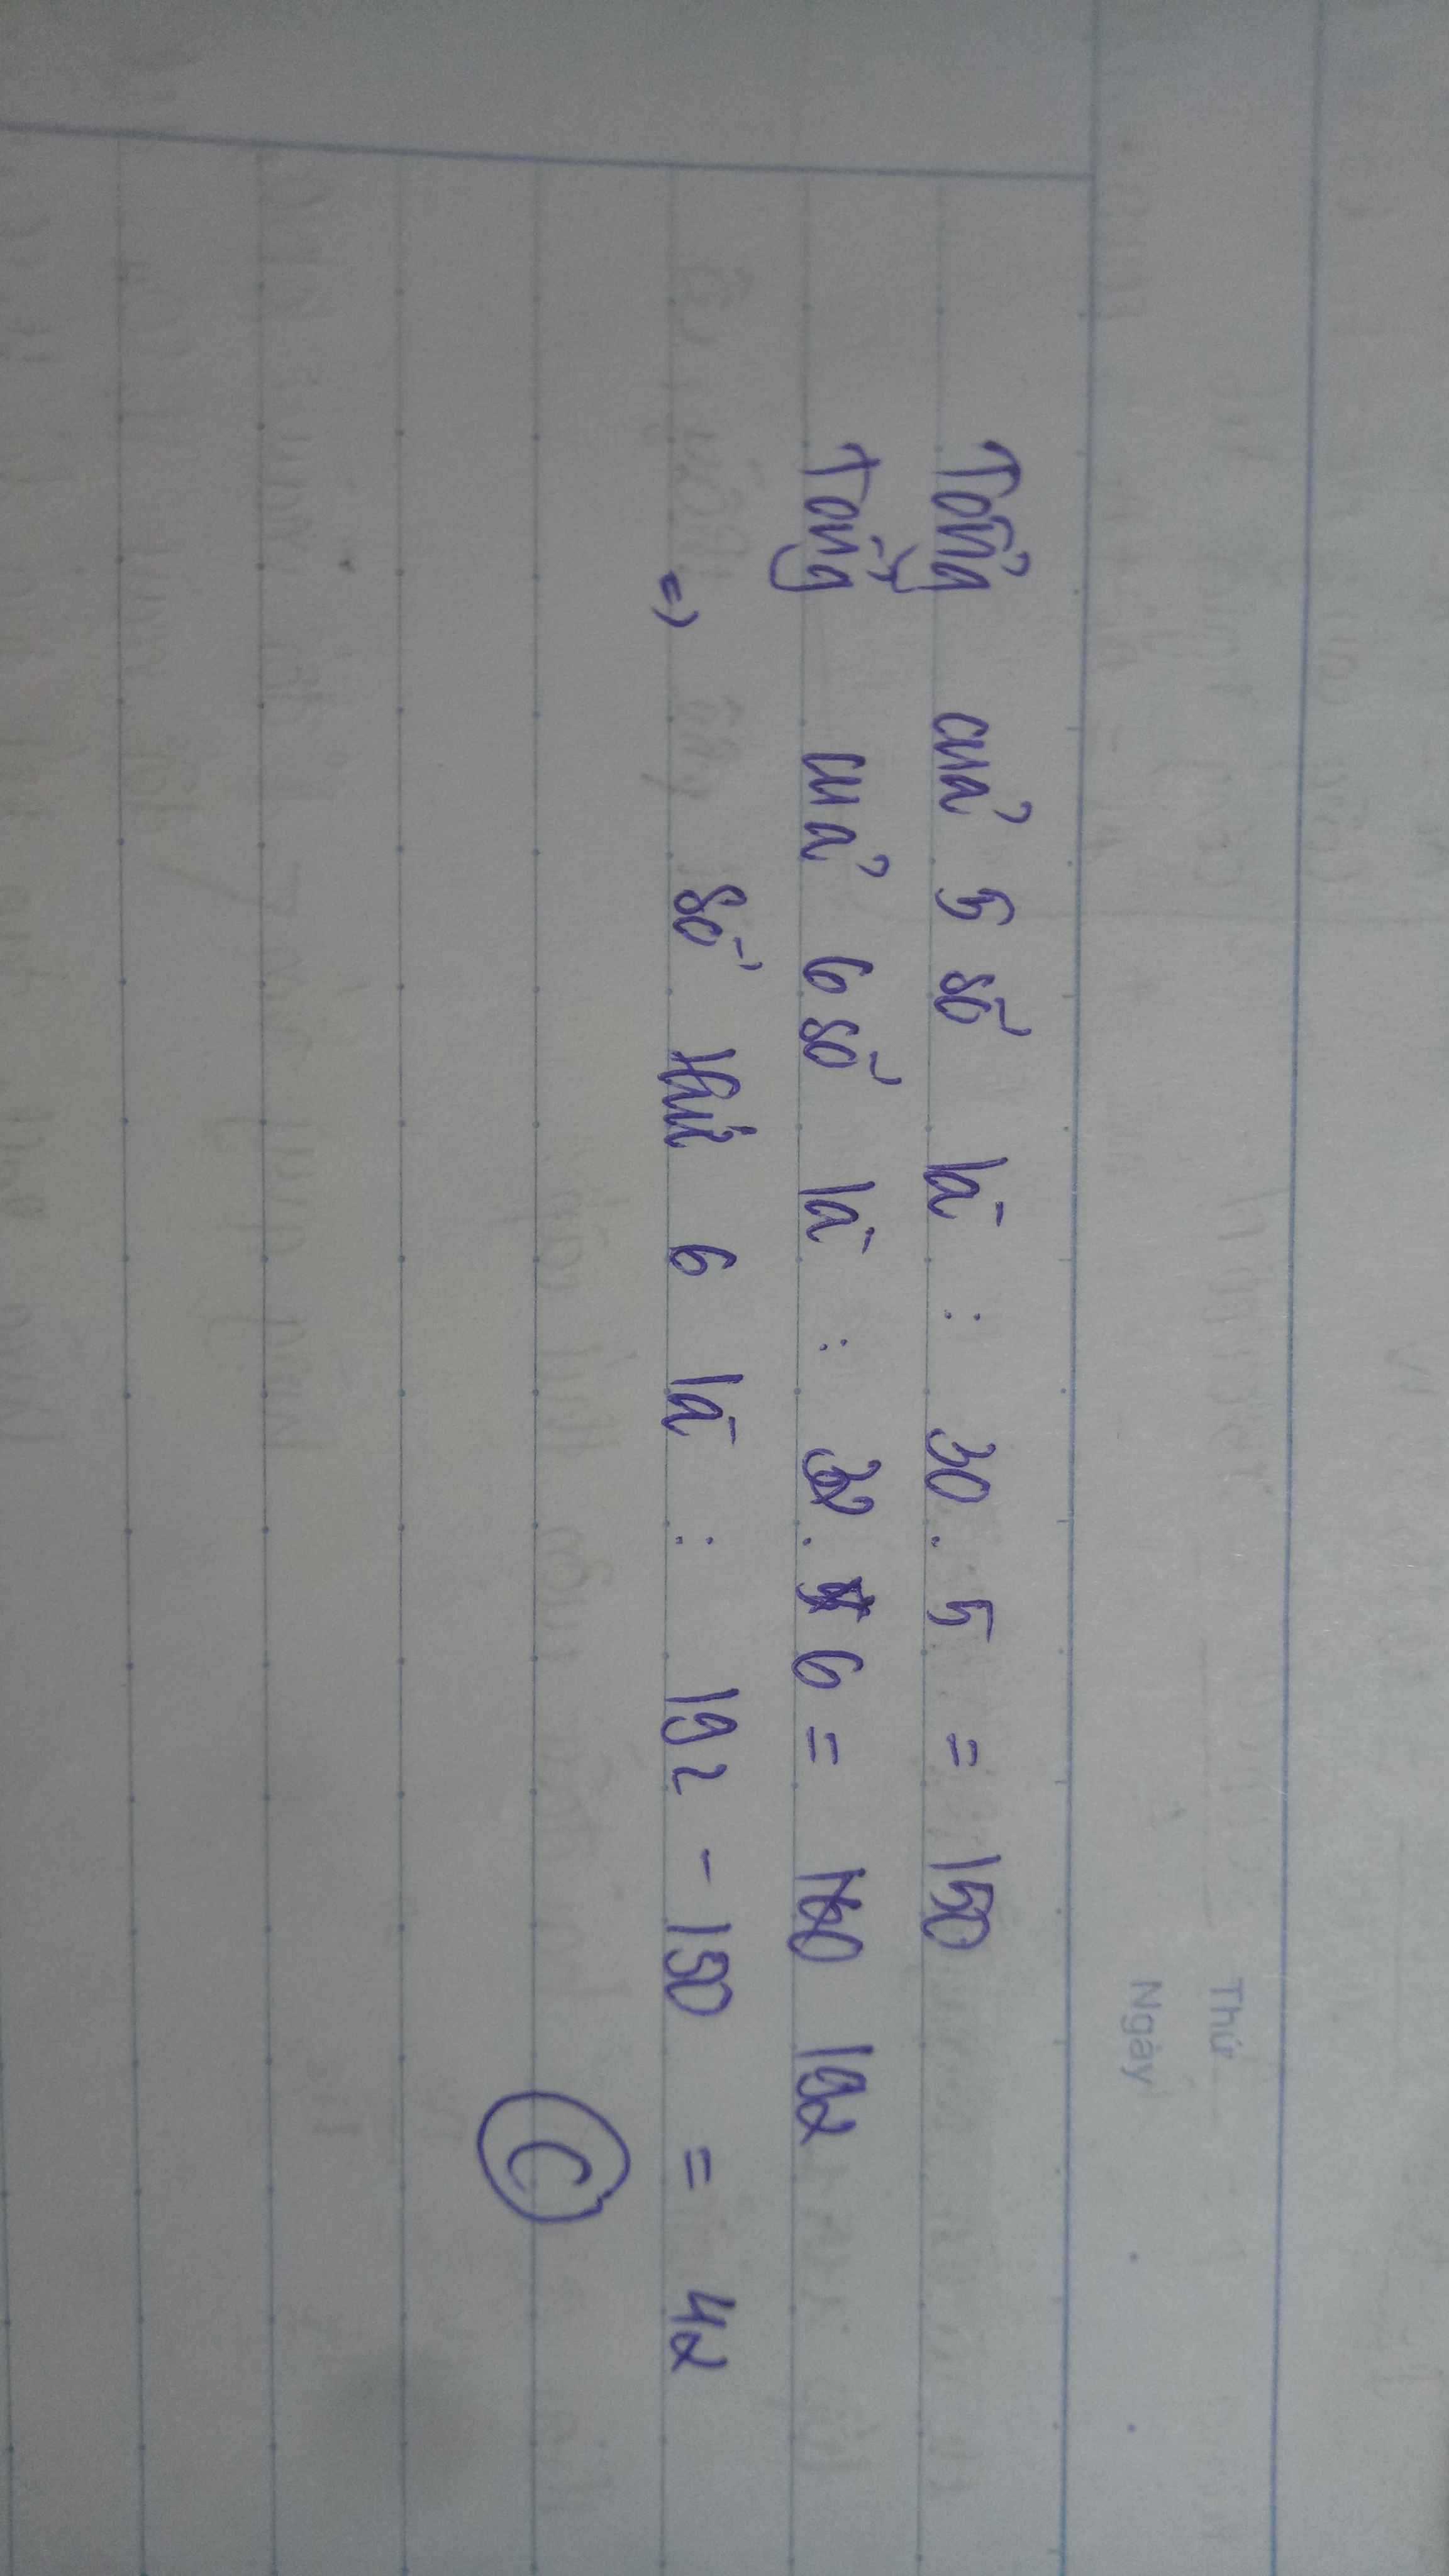 Thứ
Ngày
Tổng của 5 số là : 30 . 5 = 150
Tổng của 6 số là : 32 . 6 = 192
=> số thứ 6 là : 192 - 150 = 42
C